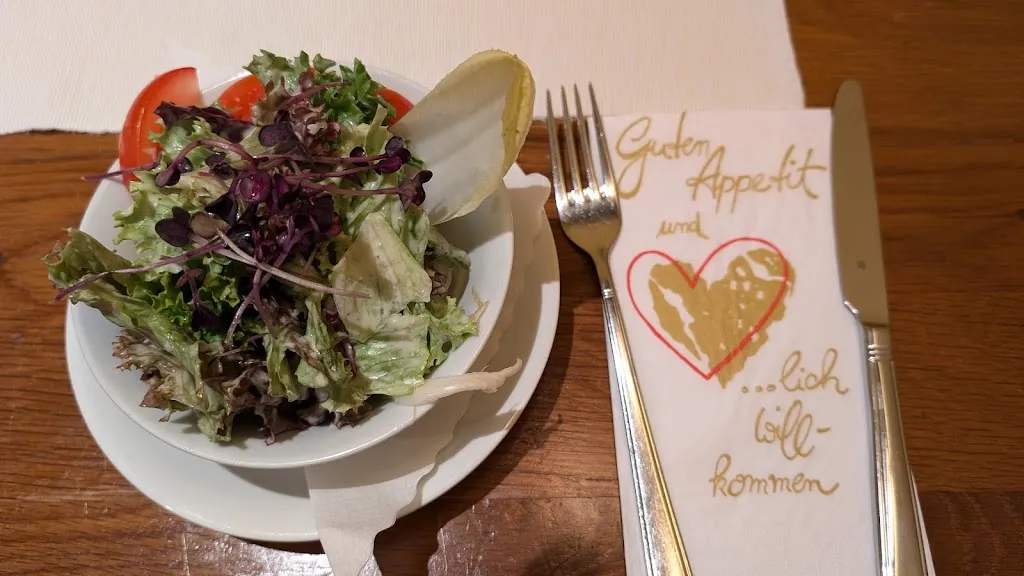 Guten
Appetit
und
...lich
Will-
kommen